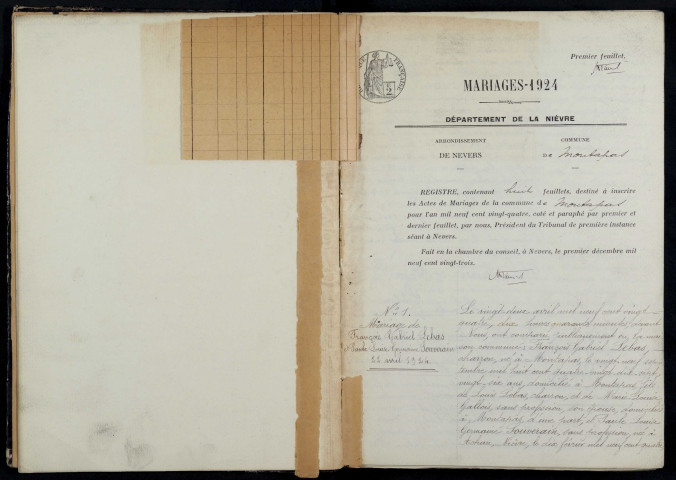 Premier feuillet.
FRANÇAISE
2
MARIAGES-1924
DÉPARTEMENT DE LA NIÈVRE
ARRONDISSEMENT
DE NEVERS
COMMUNE
DE Montapas
REGISTRE, contenant huit feuillets, destiné à inscrire
les Actes de Mariages de la commune de Montapas
pour l'an mil neuf cent vingt-quatre, coté et paraphé par premier et
dernier feuillet, par nous, Président du Tribunal de première instance
séant à Nevers.
Fait en la chambre du conseil, à Nevers, le premier décembre mil
neuf cent vingt-trois.
N° 1.
Mariage de
François Gabriel Lebas
& Paule Louise Germaine Souverain
22 avril 1924
Le vingt-deux avril mil neuf cent vingt
quatre, dix heures quarante minutes, devant
Nous, ont comparu publiquement en la mai
son commune: François Gabriel Lebas,
charron, né à Montapas, le vingt-neuf sep
tembre mil huit cent quatre vingt dix-sept,
vingt-six ans, domicilié à Montapas, fils
de Louis Lebas, charron, et de Marie Louise
Gallois, sans profession, son épouse, domiciliés
à Montapas, d'une part, et Paule Louise
Germaine Souverain, sans profession, née à
Achun, Nièvre, le six février mil neuf cent quatre